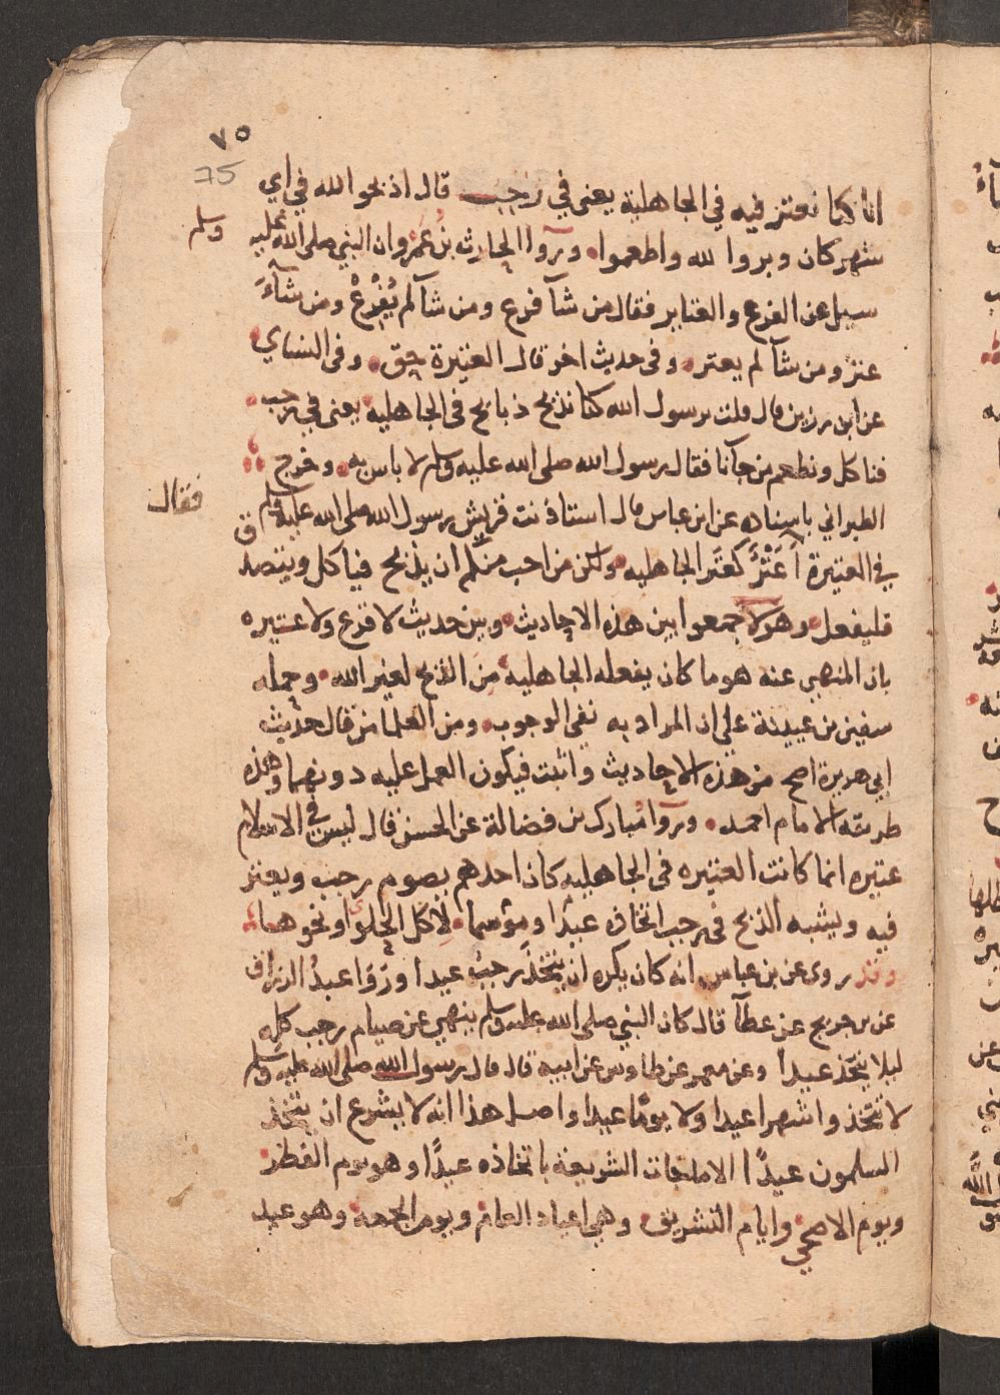 ٧٥
75
انا كنا نعتر فيه في الجاهلية يعنى في رجب قال اذبحوا لله في اي
شهر كان وبروا لله واطعموا وروا الحارث بن عمرو ان النبي صلى الله عليه وسلم
سيل عن الفرع والعتاير فقال من شآ فرع ومن شآ لم يُفْرِعْ ومن شآءَ
عتر ومن شآ لم يعتر وفى حديث اخر قال العتيرة حق وفى النساي
عن ابن رزين قال قلت يرسول الله كنا نذبح ذبايح فى الجاهلية يعنى في رجب
فناكل ونطعم من جآنا فقال رسول الله صلى الله عليه وسلم لا باس به وخرج
الطبراني باسناده عن ابن عباس قال استاذنت قريش رسول الله صلى الله عليه وسلم
فقال
في العتيرة اعَتْرٌ كعَتَر الجاهليه ولكن من احب منكم ان يذبح فياكل ويتصدق
فليفعل وهولا جمعوا بين هذه الاحاديث وبين حديث لا فرع ولا عتيره
بان المنهي عنه هو ما كان يفعله الجاهلية من الذبح لغير الله وحمله
سفين بن عيينة على ان المراد به نفى الوجوب ومن العلما من قال حديث
ابي هريرة اصح من هذه الاحاديث واثبت فيكون العمل عليه دونها وهذه
طريقه الامام احمد وروا مُبارك بن فضالة عن الحسن قال ليس في الاسلام
عتيره انما كانت العتيره فى الجاهليه كان احدهم يصوم رجب ويعتر
فيه ويشبه الذبح فى رجب اتخاذه عيدًا وموْسما لِأكل الحلوى او نحوهما
وقد روى عن بن عباس انه كان يكره ان يتخذ رجبُ عيدا ورَوَا عبدُ الرزاق
عن بن جريج عن عطآ قال كان النبي صلى الله عليه وسلم ينهي عن صيام رجب كله
ليلا يتخذ عيدا وعن معمر عن طاوس عن ابيه قال قال رسول الله صلى الله عليه وسلم
لا تتخذوا شهرا عيدا ولا يومًا عيدا واصل هذا انه لا يشرع ان يتخذ
المسلمون عيدًا الا ما جات الشريعة باتخاذه عيدًا وهو يوم الفطر
ويوم الاضحي وايام التشريق وهي اعياد العام ويوم الجمعة وهو عيد